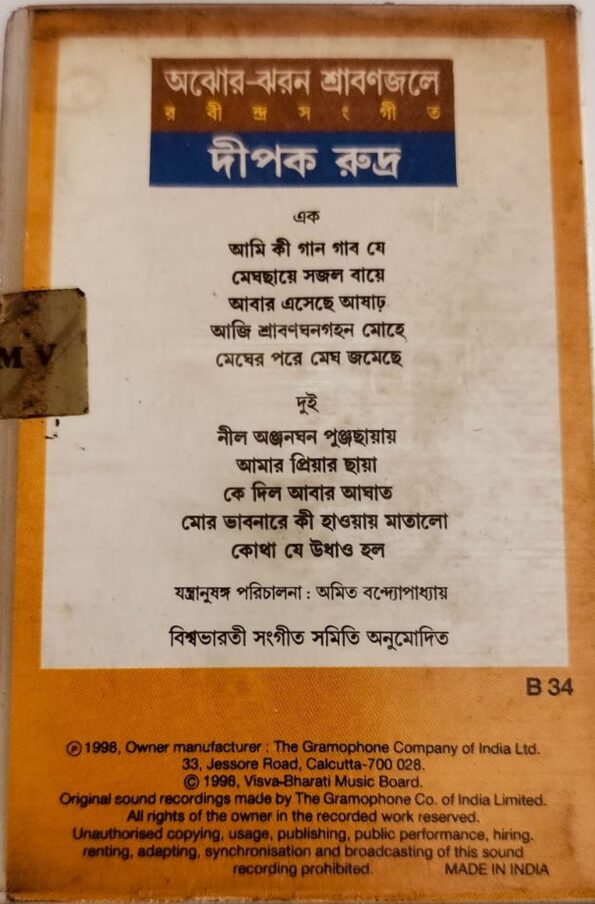 অঝোর-ঝরন শ্রাবণজলে
রবীন্দ্রসংগীত
দীপক রুদ্র
এক
আমি কী গান গাব যে
মেঘছায়ে সজল বায়ে
আবার এসেছে আষাঢ়
আজি শ্রাবণঘনগহন মোহে
মেঘের পরে মেঘ জমেছে
M V
দুই
নীল অঞ্জনঘন পুঞ্জছায়ায়
আমার প্রিয়ার ছায়া
কে দিল আবার আঘাত
মোর ভাবনারে কী হাওয়ায় মাতালো
কোথা যে উধাও হল
যন্ত্রানুষঙ্গ পরিচালনা : অমিত বন্দ্যোপাধ্যায়
বিশ্বভারতী সংগীত সমিতি অনুমোদিত
B 34
Ⓟ 1998, Owner manufacturer : The Gramophone Company of India Ltd.
33, Jessore Road, Calcutta-700 028.
© 1998, Visva-Bharati Music Board.
Original sound recordings made by The Gramophone Co. of India Limited.
All rights of the owner in the recorded work reserved.
Unauthorised copying, usage, publishing, public performance, hiring,
renting, adapting, synchronisation and broadcasting of this sound
recording prohibited. MADE IN INDIA